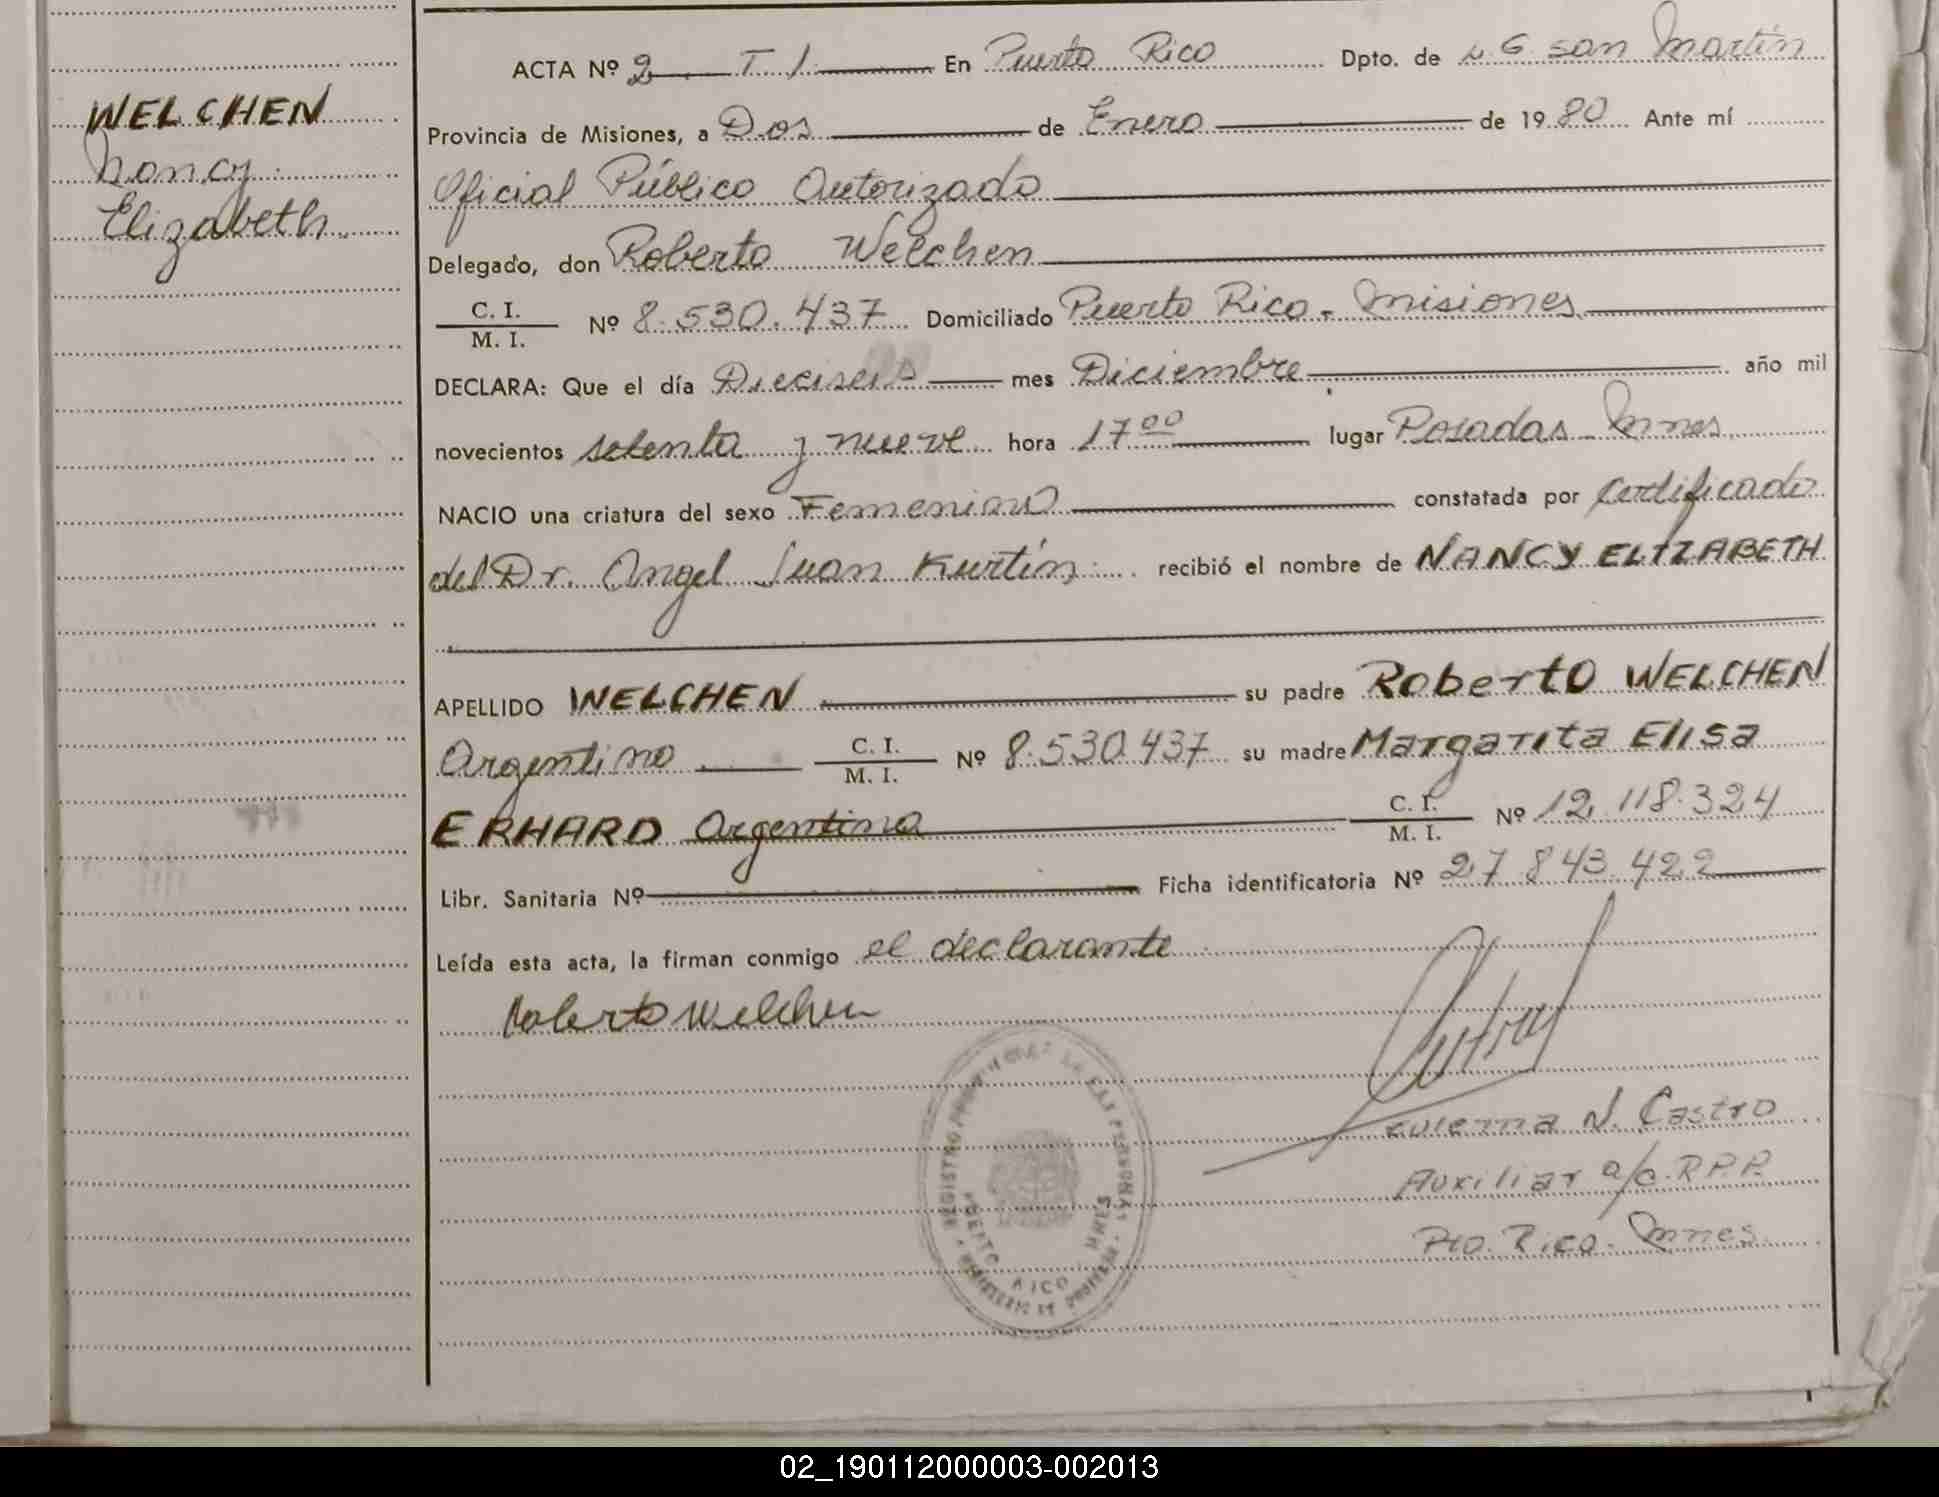 WELCHEN
Nancy
Elizabeth
ACTA Nº 2 T. 1 En Puerto Rico Dpto. de L G san Martín
Provincia de Misiones, a Dos de Enero de 1980 Ante mí
Oficial Público Autorizado
Delegado, don Roberto Welchen
C. I.
M. I. Nº 8.530.437 Domiciliado Puerto Rico - Misiones
DECLARA: Que el día Dieciseis mes Diciembre año mil
novecientos setenta y nueve hora 17⁰⁰ lugar Posadas Mnes
NACIO una criatura del sexo Femenino constatada por certificado
del Dr. Angel Juan Kurtin recibió el nombre de NANCY ELIZABETH
APELLIDO WELCHEN su padre Roberto WELCHEN
Argentino C. I. M. I. Nº 8.530.437 su madre Margarita Elisa
ERHARD Argentina C. I. M. I. Nº 12.118.324
Libr. Sanitaria Nº Ficha identificatoria Nº 27.843.422
Leída esta acta, la firman conmigo el declarante
Roberto Welchen
N. Castro
Auxiliar a/c. R.P.P.
Pto. Rico. Mnes.
PUERTO RICO MNES
02_190112000003-002013